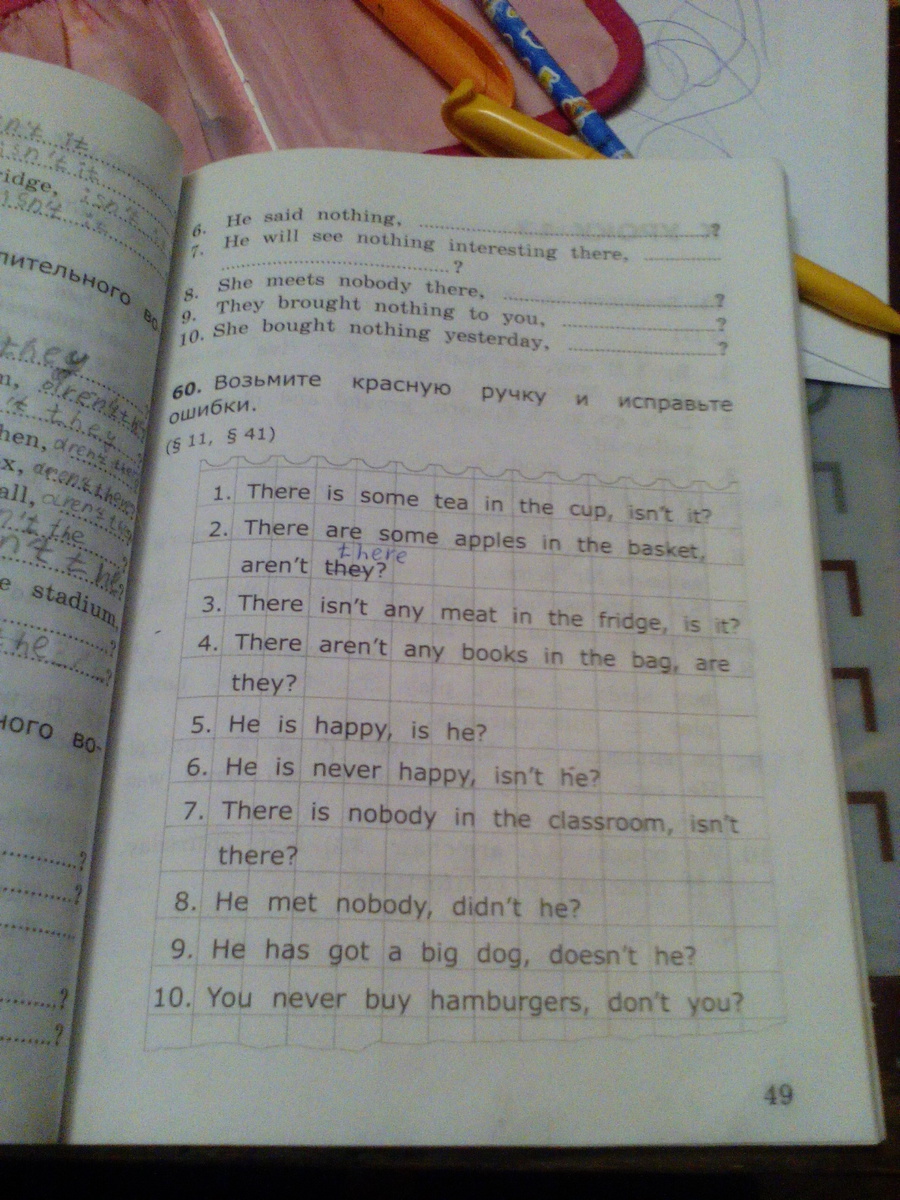 n't it
isn't it
ridge, isn't
isn't it
лительного во
they
n, aren't th
't they
hen, aren't
x, aren't they
all, aren't
n't the
n't the ?
e stadium,
?
the ?
ного во-
?
?
?
?
6. He said nothing, ?
7. He will see nothing interesting there,
?
8. She meets nobody there, ?
9. They brought nothing to you, ?
10. She bought nothing yesterday, ?
60. Возьмите красную ручку и исправьте
ошибки.
(§ 11, § 41)
1. There is some tea in the cup, isn't it?
2. There are some apples in the basket,
there
aren't they?
3. There isn't any meat in the fridge, is it?
4. There aren't any books in the bag, are
they?
5. He is happy, is he?
6. He is never happy, isn't he?
7. There is nobody in the classroom, isn't
there?
8. He met nobody, didn't he?
9. He has got a big dog, doesn't he?
10. You never buy hamburgers, don't you?
49